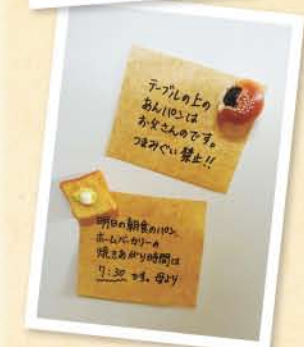 テーブルの上の
あんパンは
お父さんのです。
つまみぐい禁止!!
明日の朝食のパン、
ホームベーカリーの
焼きあがり時間は
7:30 です。母より